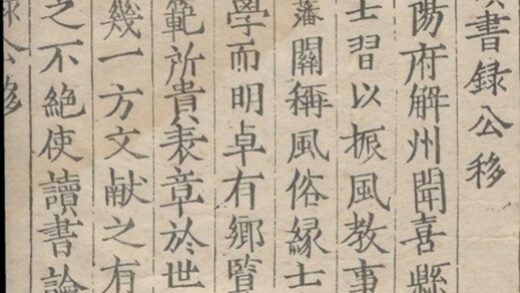 書録公移
陽府解州聞喜縣
士習以振風教事
藩關稱風俗縁士
學而明卓有鄉賢
範所貴表章於世
幾一方文献之有
之不絶使讀書論
公移